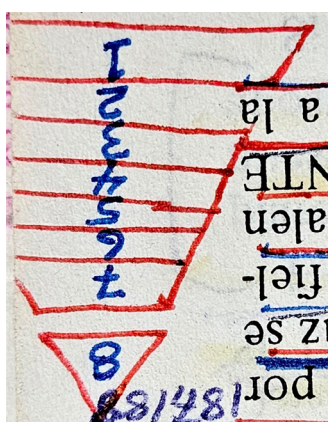 1
2
3
4
5
6
7
8
por
uz se
fiel-
alen
NTE
a la